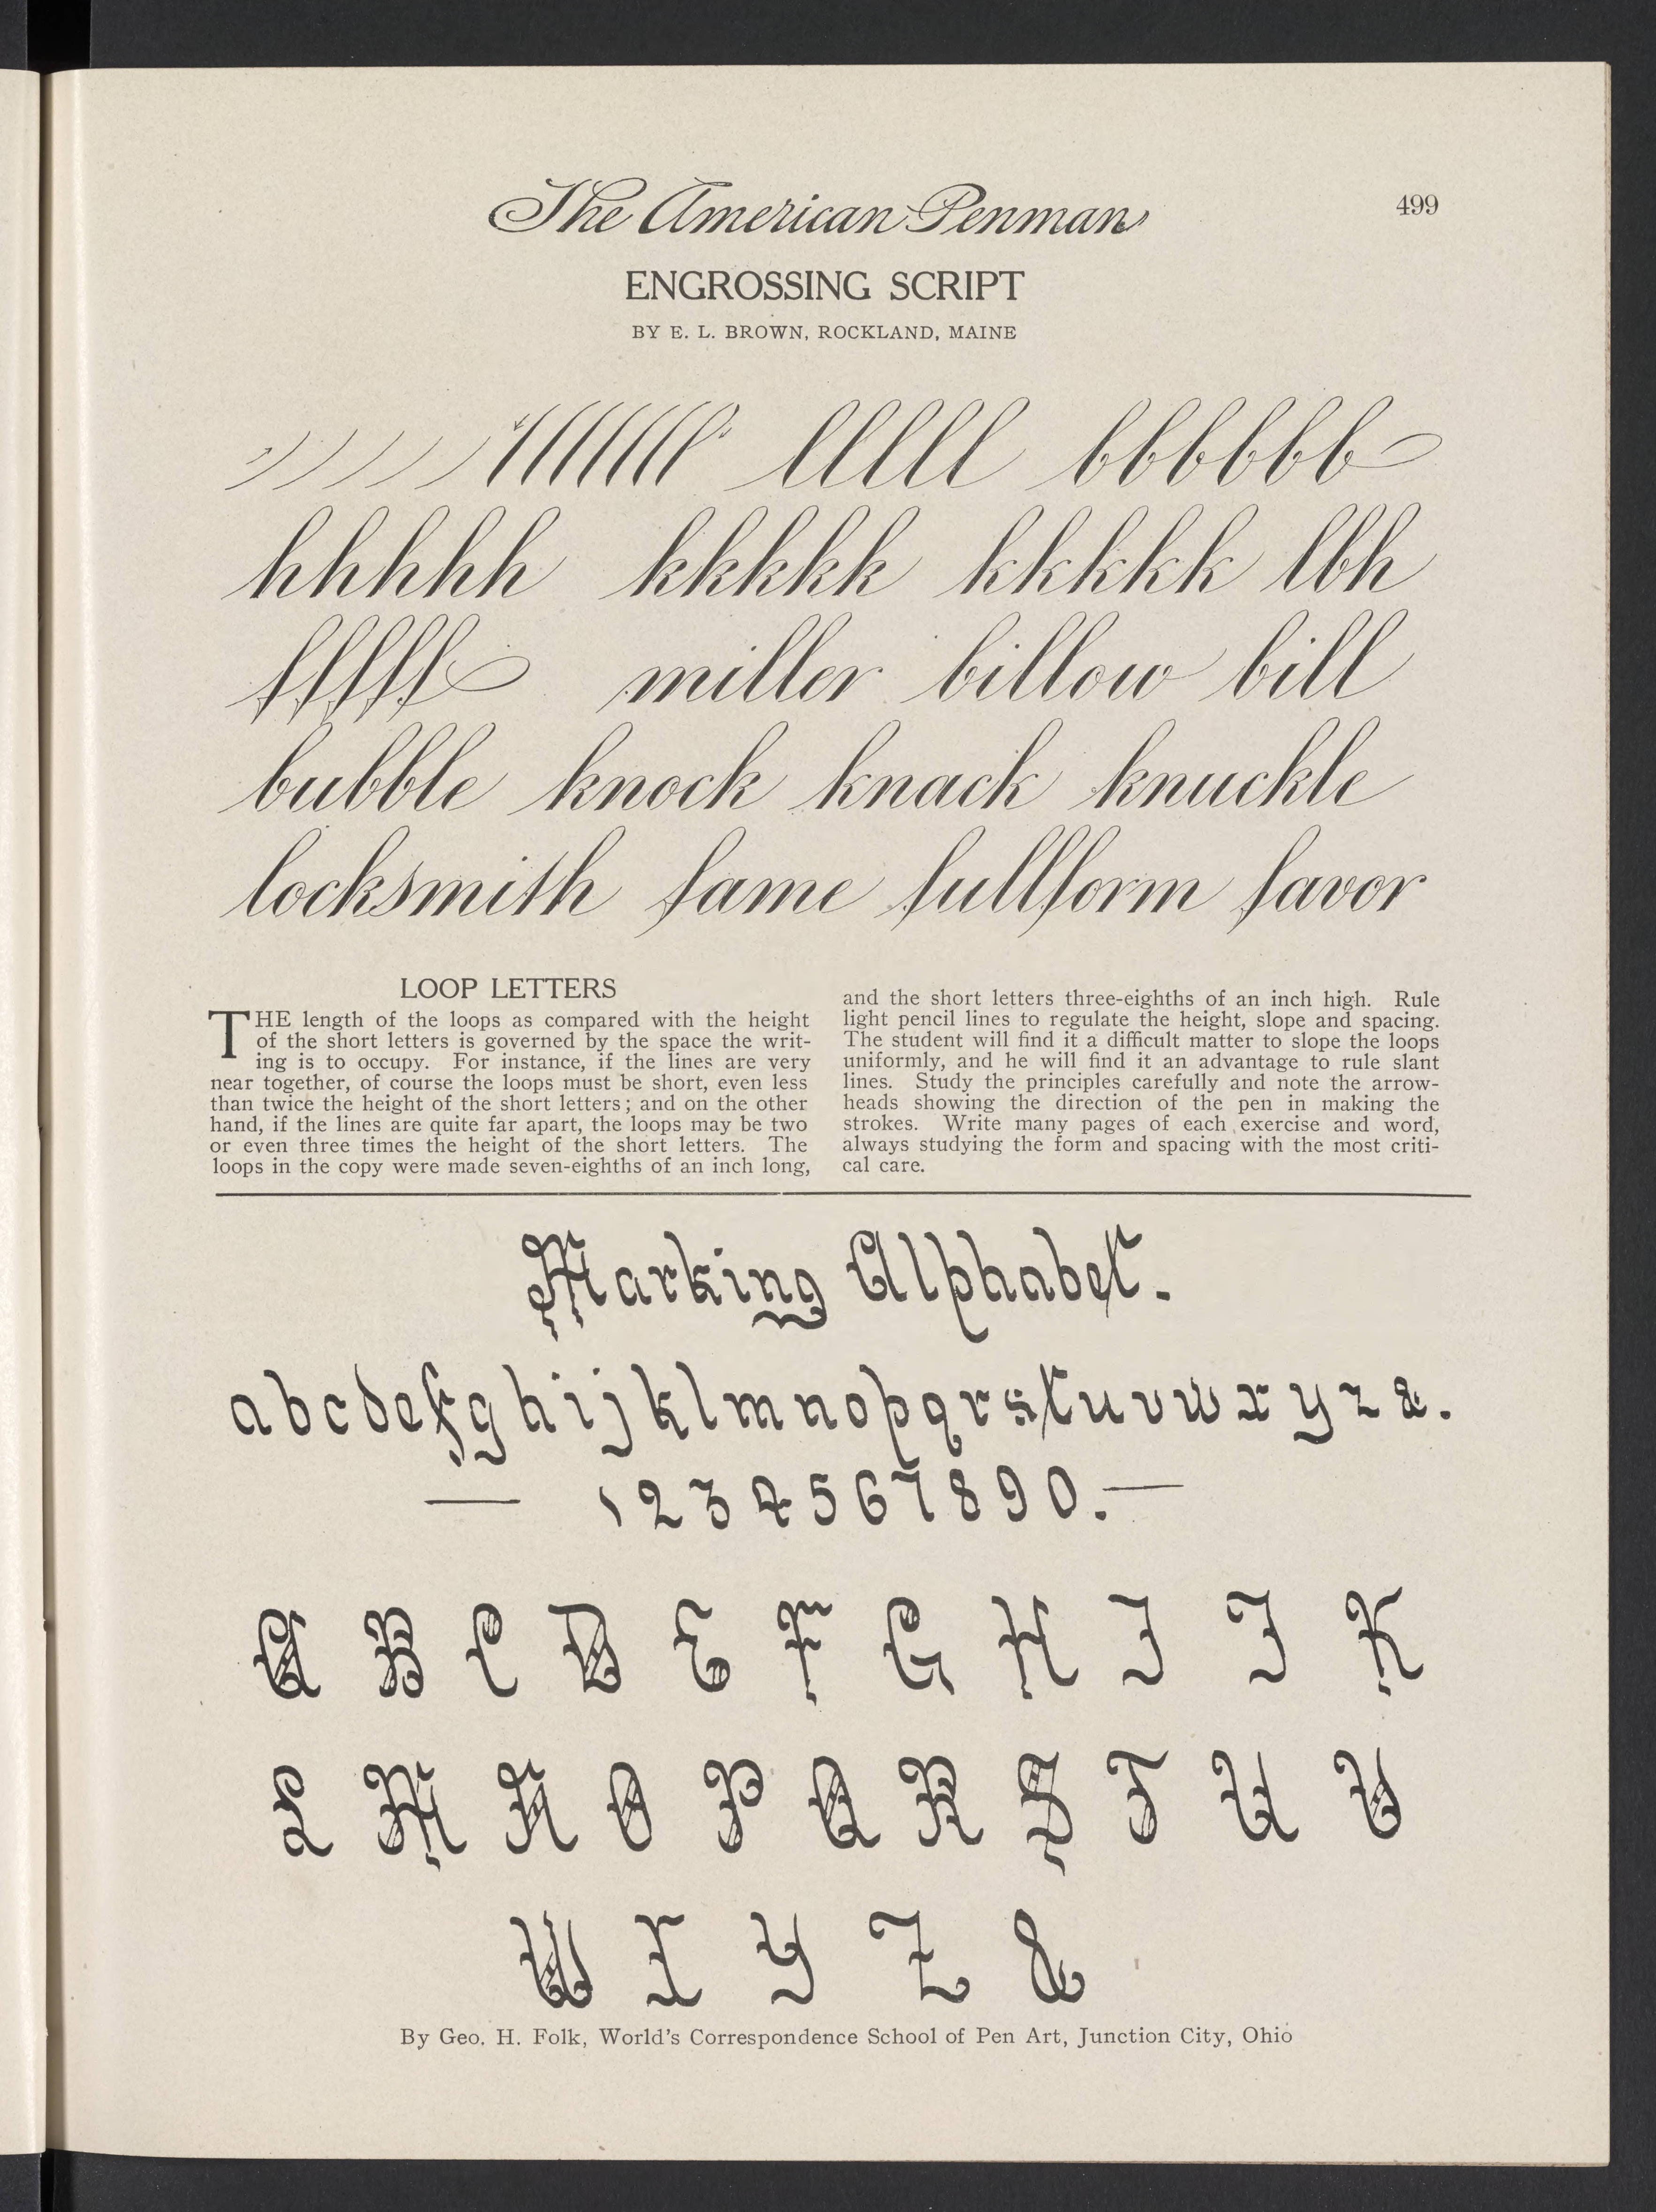 The American Penman
499
ENGROSSING SCRIPT
BY E. L. BROWN, ROCKLAND, MAINE
lllll bbbbbb
hhhhh kkkkk kkkkk lbh
fffff miller billow bill
bubble knock knack knuckle
locksmith fame fullform favor
LOOP LETTERS
THE length of the loops as compared with the height
of the short letters is governed by the space the writ-
ing is to occupy. For instance, if the lines are very
near together, of course the loops must be short, even less
than twice the height of the short letters; and on the other
hand, if the lines are quite far apart, the loops may be two
or even three times the height of the short letters. The
loops in the copy were made seven-eighths of an inch long,
and the short letters three-eighths of an inch high. Rule
light pencil lines to regulate the height, slope and spacing.
The student will find it a difficult matter to slope the loops
uniformly, and he will find it an advantage to rule slant
lines. Study the principles carefully and note the arrow-
heads showing the direction of the pen in making the
strokes. Write many pages of each exercise and word,
always studying the form and spacing with the most criti-
cal care.
Marking Alphabet.
a b c d e f g h i j k l m n o p q r s t u v w x y z &.
— 1 2 3 4 5 6 7 8 9 0. —
A B C D E F G H I J K
L M N O P Q R S T U V
W X Y Z &
By Geo. H. Folk, World's Correspondence School of Pen Art, Junction City, Ohio